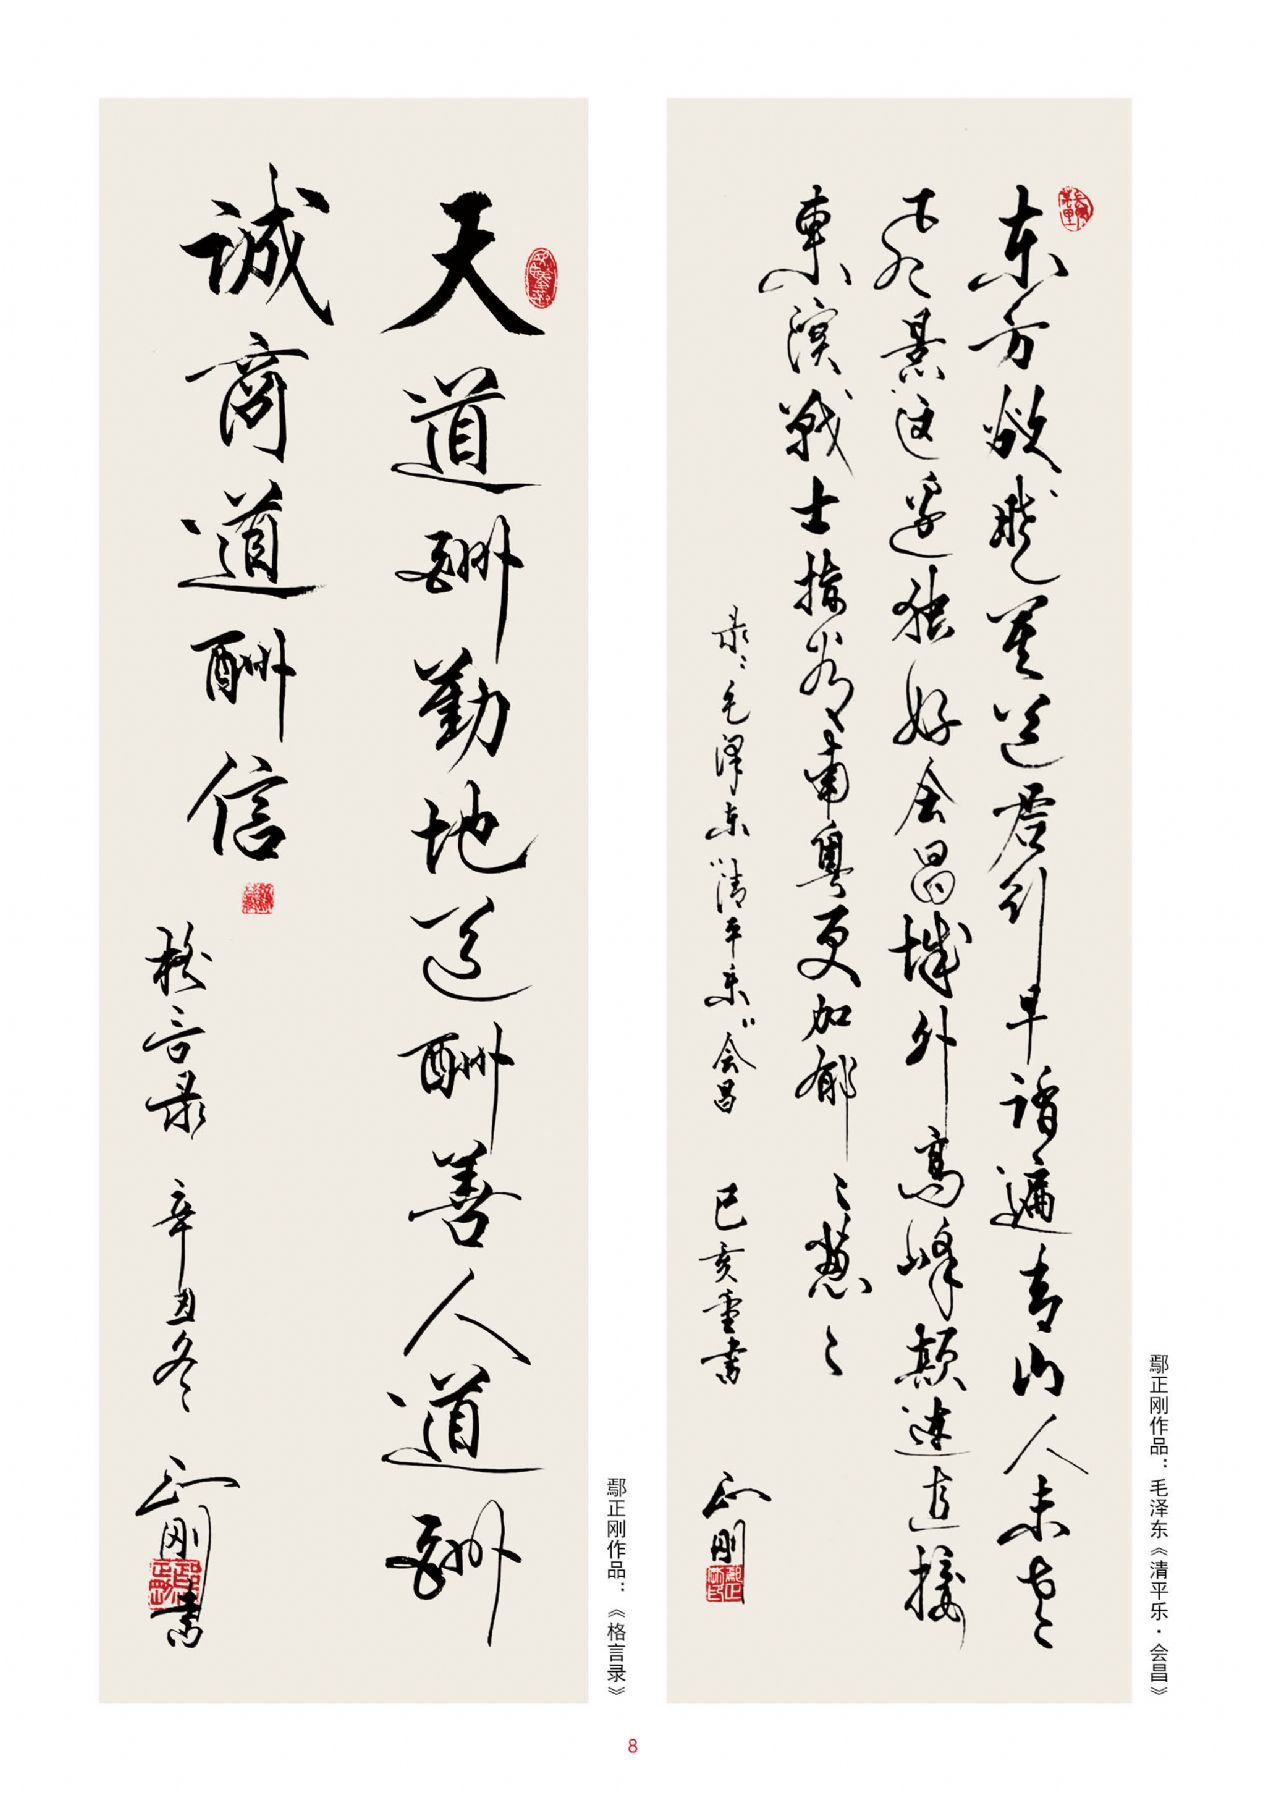 东方欲晓莫道君行早踏遍青山人未老
风景这边独好会昌城外高峰颠连直接
東溟战士指看南粤更加郁々葱々
录：毛泽东“清平乐”会昌 己亥重书 正刚
鄢正刚作品：毛泽东《清平乐·会昌》
天道酬勤地道酬善人道酬
诚商道酬信
格言录 辛丑冬 正刚书
鄢正刚作品：《格言录》
8